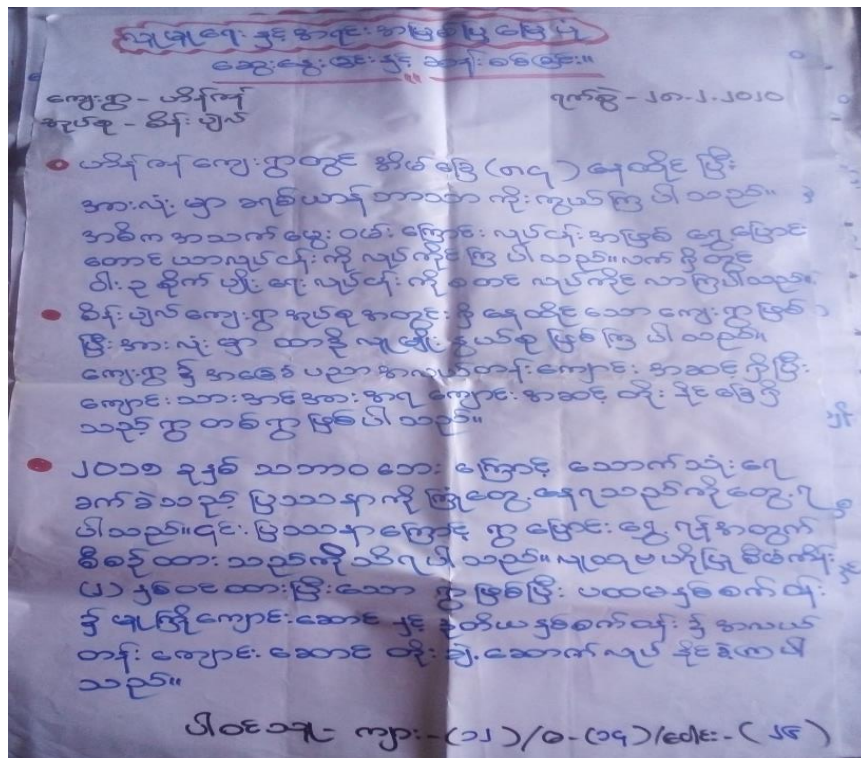 လူမှုရေး နှင့် အရင်းအမြစ်ပြ မြေပုံ
ဆွေးနွေးခြင်းနှင့် ဆန်းစစ်ခြင်း။
ကျေးရွာ - ဟိန်ကန်
အုပ်စု - စိန်းပျံလ်
ရက်စွဲ - ၂၈.၂.၂၀၂၀
ဟိန်ကန်ကျေးရွာတွင် အိမ်ခြေ (၈၄) နေထိုင်ပြီး
အားလုံးမှာ ခရစ်ယာန်ဘာသာ ကိုးကွယ်ကြပါသည်။
အဓိက အသက်မွေးဝမ်းကြောင်းလုပ်ငန်းအဖြစ် ရွှေ့ပြောင်း
တောင်ယာလုပ်ငန်းကို လုပ်ကိုင်ကြပါသည်။ လက်ရှိတွင်
ဝါးဥစိုက်ပျိုးရေးလုပ်ငန်းကို စတင်လုပ်ကိုင်လာကြပါသည်။
စိန်းပျံလ်ကျေးရွာအုပ်စုအတွင်းရှိ နေထိုင်သော ကျေးရွာဖြစ်
ပြီး အားလုံးမှာ ထာဒိုလူမျိုးနွယ်စုဖြစ်ကြပါသည်။
ကျေးရွာ၌ အခြေခံပညာအလယ်တန်းကျောင်းအဆင့်ရှိပြီး
ကျောင်းသားအင်အားအရ ကျောင်းအဆင့်တိုးနိုင်ခြေရှိ
သည့် ရွာတစ်ရွာဖြစ်ပါသည်။
၂၀၁၅ ခုနှစ် သဘာဝဘေးကြောင့် သောက်သုံးရေ
ခက်ခဲသည့် ပြဿနာကို ကြုံတွေ့နေရသည်ကို တွေ့ရ
ပါသည်။ ၎င်းပြဿနာကြောင့် ရွာပြောင်းရွှေ့ရန်အတွက်
စီစဉ်ထားသည်ကို သိရပါသည်။ လူထုဗဟိုပြုစီမံကိန်း
(၂) နှစ်ဝင်ထားပြီးသော ရွာဖြစ်ပြီး ပထမနှစ်စက်ဝန်း
၌ မူကြိုကျောင်းဆောင် နှင့် ဒုတိယနှစ်စက်ဝန်း၌ အလယ်
တန်းကျောင်းဆောင် တိုးချဲ့ဆောက်လုပ်နိုင်ခဲ့ကြပါ
သည်။
ပါဝင်သူ - ကျား-(၁၂)/မ-(၁၄)/ပေါင်း-(၂၆)